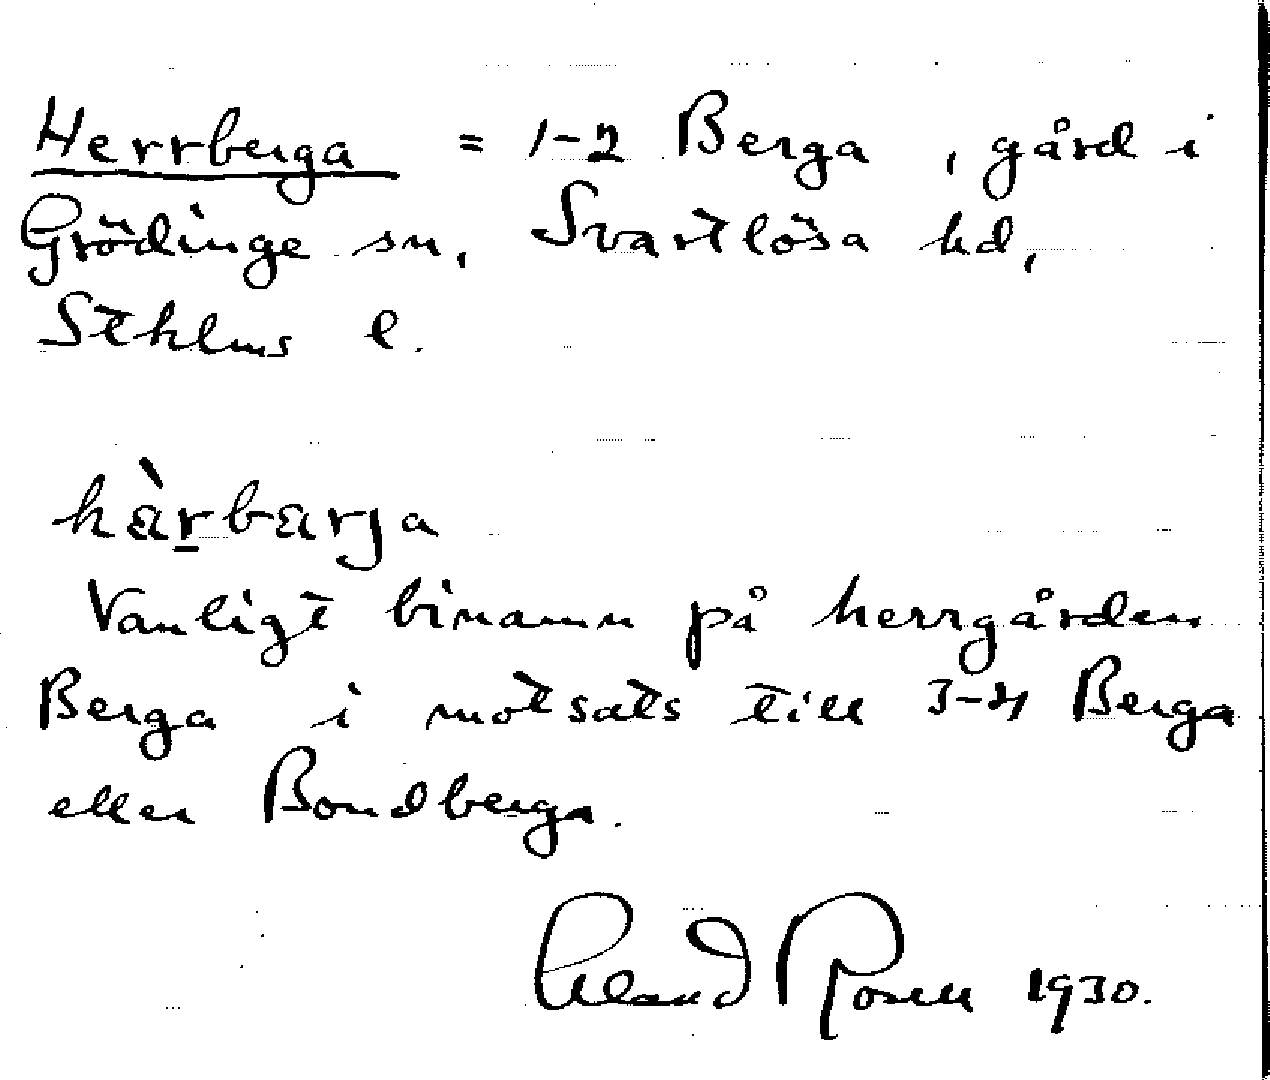 Herrberga = 1-2 Berga, gård i
Grödinge sn, Svartlösa hd,
Sthlms l.
hàrbarja
Vanligt binamn på herrgården
Berga i motsats till 3-4 Berga
eller Bondberga.
Eland Rosell 1930.